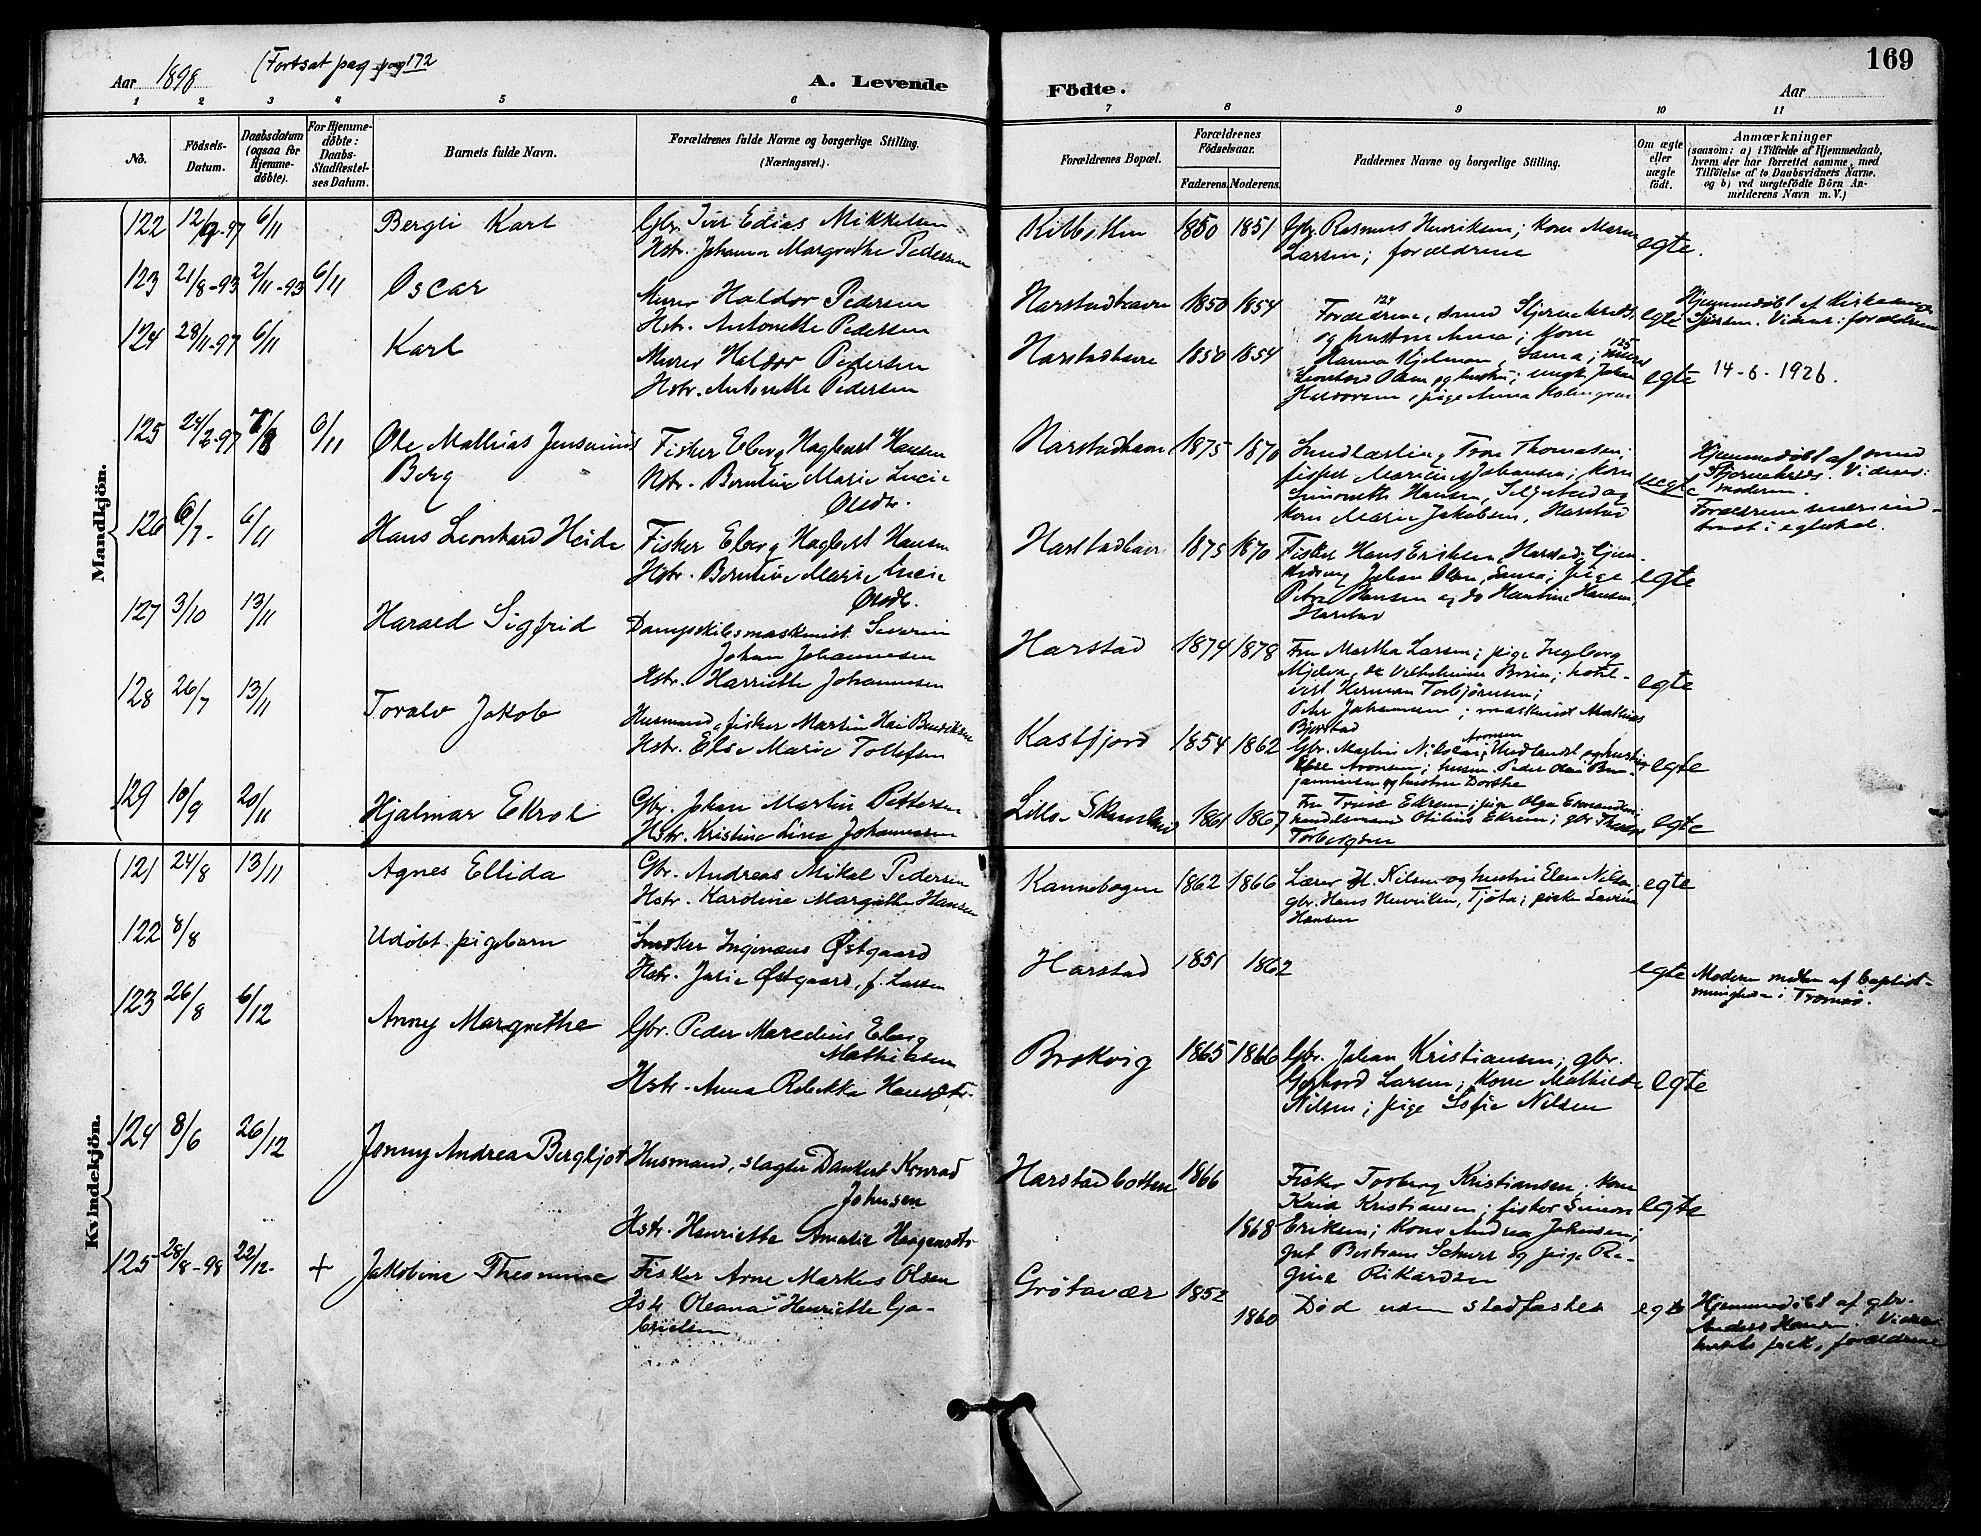 Aar 1898
(Fortsat pag 172
A. Levende
Födte.
169
Aar
1 2 3 4 5 6 7 8 9 10 11
No.
Födsels-Datum.
Daabsdatum (ogsaa for Hjemme-döbte).
For Hjemme-döbte: Daabs-Stadfæstel-ses Datum.
Barnets fulde Navn.
Forældrenes fulde Navne og borgerlige Stilling.
(Næringsvei.)
Forældrenes Bopæl.
Forældrenes Födselsaar.
Faderens. Moderens.
Faddernes Navne og borgerlige Stilling.
Om ægte eller uægte födt.
Anmærkninger
(saasom: a) i Tilfælde af Hjemmedaab,
hvem der har forrettet samme, med
Tilföielse af to Daabsvidners Navne.
og b) ved uægtefödte Börn An-
melderens Navn m. V.)
Mandkjön.
122 12/9-97 6/11 Bergli Karl
Gbr. Edias Mikkelsen
Hstr. Johanna Margrethe Pedersen
Kilbotten 1850 1851
Gbr. Rasmus Henriksen; kone Maren
Larsen; forældrene
egte.
123 21/8-93 2/11-93 6/11 Oscar
Murer Haldor Pedersen
Hstr. Antonette Pedersen
Harstadhavn 1850 1854
124
Forældrene, smed
og hustru Anna; kone
egte
Hjemmedöbt af Kirkesanger
Vidner: forældrene
124 28/11-97 6/11 Karl
Murer Haldor Pedersen
Hstr. Antonette Pedersen
Harstadhavn 1850 1854
Hanna Hjelman, Sama; 125
Olsen og hustru; ungk. Johan
pige Anna Holmgren
egte
14-6-1926.
125 24/2-97 7/8 6/11 Ole Mathias Jensenius
Berg
Fisker Eberg Hagbart Hansen
Hstr. Berntine Marie Lucie
Olsdtr.
Harstadhavn 1875 1870
Smedlærling Tore Thomassen;
Johansen; kone
Hansen, og
kone Marie Jakobsen, Harstad
uegte
Hjemmedöbt af smed
Vidner:
moderen.
Forældrene senere ind-
traat i egteskab.
126 6/7- 6/11 Hans Leonhard Heide
Fisker Eberg Hagbart Hansen
Hstr. Berntine Marie Lucie
Olsdtr.
Harstadhavn 1875 1870
Fisker Hans Eriksen, Harstad;
Johan Olsen, Sama; pige
Petra Hansen og do Hantine Hansen,
Harstad
egte
127 3/10 13/11 Harald Sigfrid
Dampskibsmaskinist Severin
Johan Johannesen
Hstr. Harriette Johannesen
Harstad 1874 1878
Fru Martha Larsen; pige Ingeborg
Mjelva, do Vilhelmine hotel-
vert Herman Torbjörnsen;
Petr. Johannesen; maskinist Mathias
Bjerstad
egte
128 26/7 13/11 Toralv Jakob
Husmand, fisker Martin Hai Bendiksen
Hstr. Else Marie Tollefsen
Kastfjord 1854 1862
Aronsen
Gbr. Martin Nilsen, og hustru
Else Aronsen; husm. Peder Olai Ben-
jaminsen og hustru Dorthe
egte
129 10/9 20/11 Hjalmar Ekrol
Gbr. Johan Martin Pettersen
Hstr. Kristine Lina Johannesen
Lille Skånland 1861 1867
Fru Trine Ekrem; pige Olga
handelsmand Otilius Ekrem; gbr.
Torbergsen
egte
Kvindekjön.
121 24/8 13/11 Agnes Ellida
Gbr. Andreas Mikal Pedersen
Hstr. Karoline Margrethe Hansen
Kannebogen 1862 1866
Lærer H. Nilsen og hustru Elen Nilsen,
gbr. Hans Henriksen, Tjöta; pike Lavina
Hansen
egte
122 8/8 Udöbt pigebarn
Smedker Ingenæus Östgaard
Hstr. Jarie Östgaard, f. Larsen
Harstad 1851 1862
egte
Moderen medlem af baptist-
menigheden i Tromsö.
123 26/8 6/12 Anny Margrethe
Gbr. Peder Maredius Eberg
Mathisen
Hstr. Anna Rebekka Hansdtr.
Brokvig 1865 1866
Gbr. Johan Kristiansen; gbr.
Gerhard Larsen; kone Mathilde
Nilsen; pige Sofie Nilsen
egte
124 8/6 26/12 Jenny Andrea Bergljot
Husmand, slagter Dankert Konrad
Johnsen
Hstr. Henriette Amalie Haagensdtr
Harstadbotten 1866 1868
Fisker Torberg Kristiansen, kone
Kaia Kristiansen; fisker Simon
Eriksen; kone Andrea Johansen;
gut Bertrans Schurr og pige Re-
gine Rikardsen
egte
125 28/8-98 22/12- + Jakobine Thesmine
Fisker Arne Markus Olsen
Hstr. Oleana Henriette Ga-
brielsen
Grötavær 1852 1860
Död uden stadfæstes
egte
Hjemmedöbt af gbr.
Anders Hansen. Vidner:
husets folk, forældrene